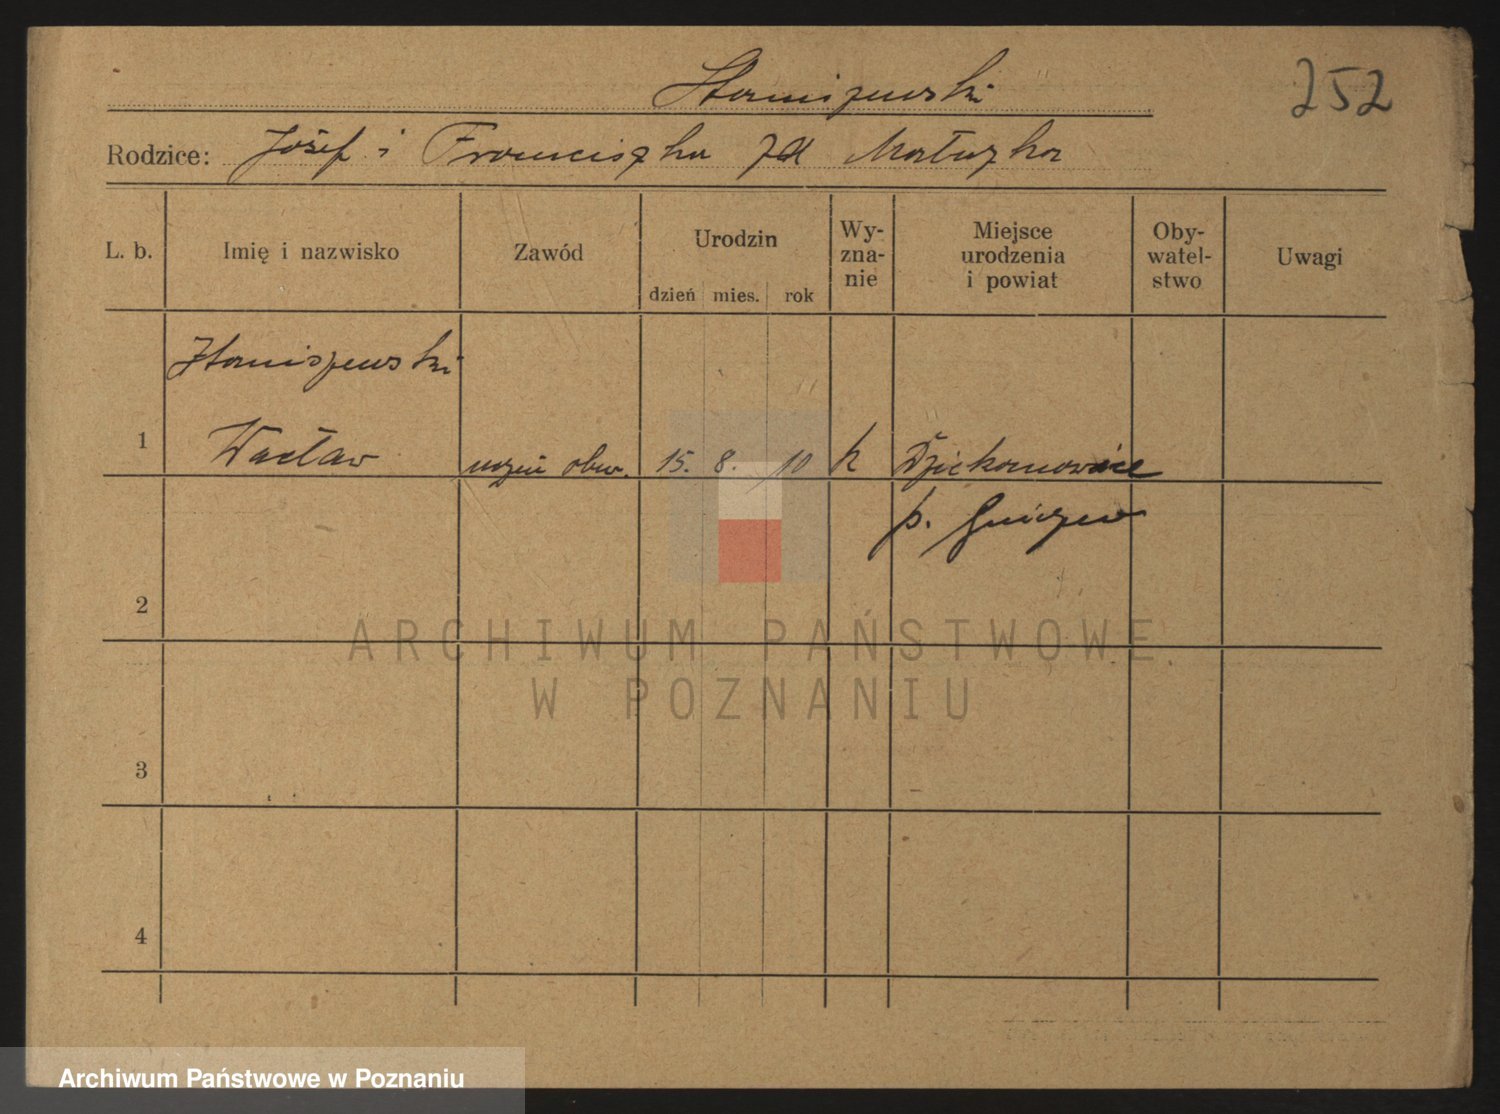 252
Staniszewski
Rodzice: Józef i Franciszka zd Małuzka
L. b. Imię i nazwisko Zawód Urodzin dzień mies. rok Wy-znanie Miejsce urodzenia i powiat Oby-watel-stwo Uwagi
Staniszewski
1 Wacław uczeń obw. 15. 8. 10 k Dziekanowice
p. Gniezno
2
ARCHIWUM PAŃSTWOWE
W POZNANIU
3
4
Archiwum Państwowe w Poznaniu